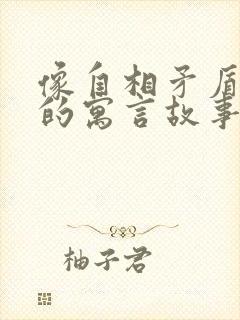 像自相矛盾
的寓言故事
柚子君